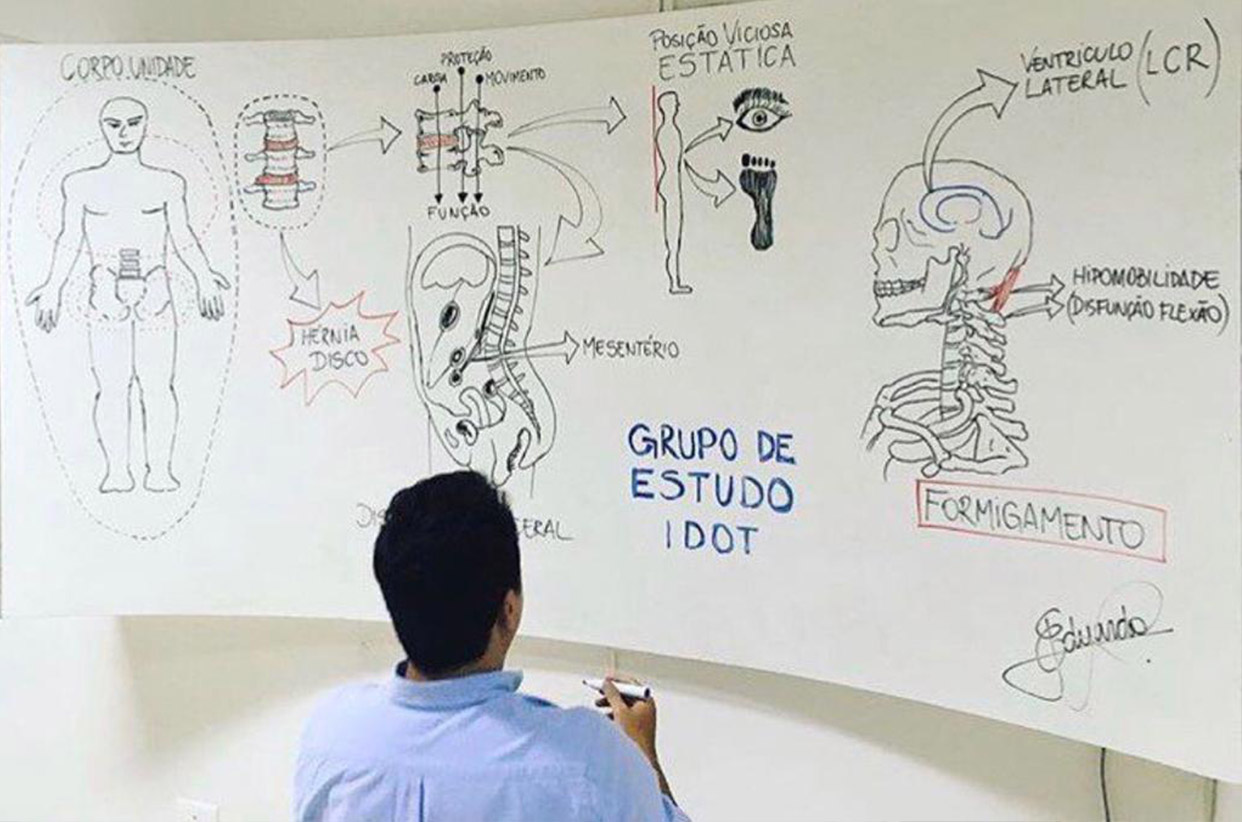 CORPO.UNIDADE
PROTEÇÃO
CARGA MOVIMENTO
FUNÇÃO
HÉRNIA
DISCO
MESENTÉRIO
POSIÇÃO VICIOSA
ESTÁTICA
GRUPO DE
ESTUDO
IDOT
VENTRICULO
LATERAL (LCR)
HIPOMOBILIDADE
(DISFUNÇÃO FLEXÃO)
FORMIGAMENTO
Eduardo